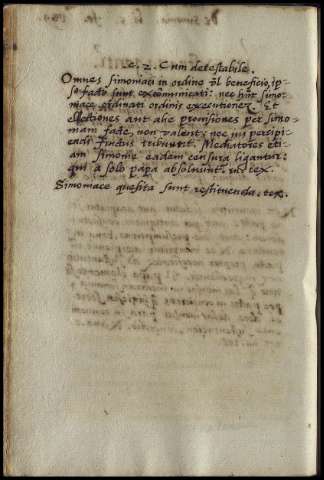 c. 2. Cum detestabile.
Omnes simoniaci in ordine vl beneficio, ip-
so facto sunt excommunicati: nec hnt simo-
niace ordinati ordinis executionem. Et
electiones aut alie provisiones per simo-
niam facte, non valent: nec ius percipi-
endi fructus tribuunt. Mediatores eti-
am simonie eadem censura ligantur:
qui a solo papa absolvunt. ut. tex.
Simoniace quesita sunt restituenda. tex.